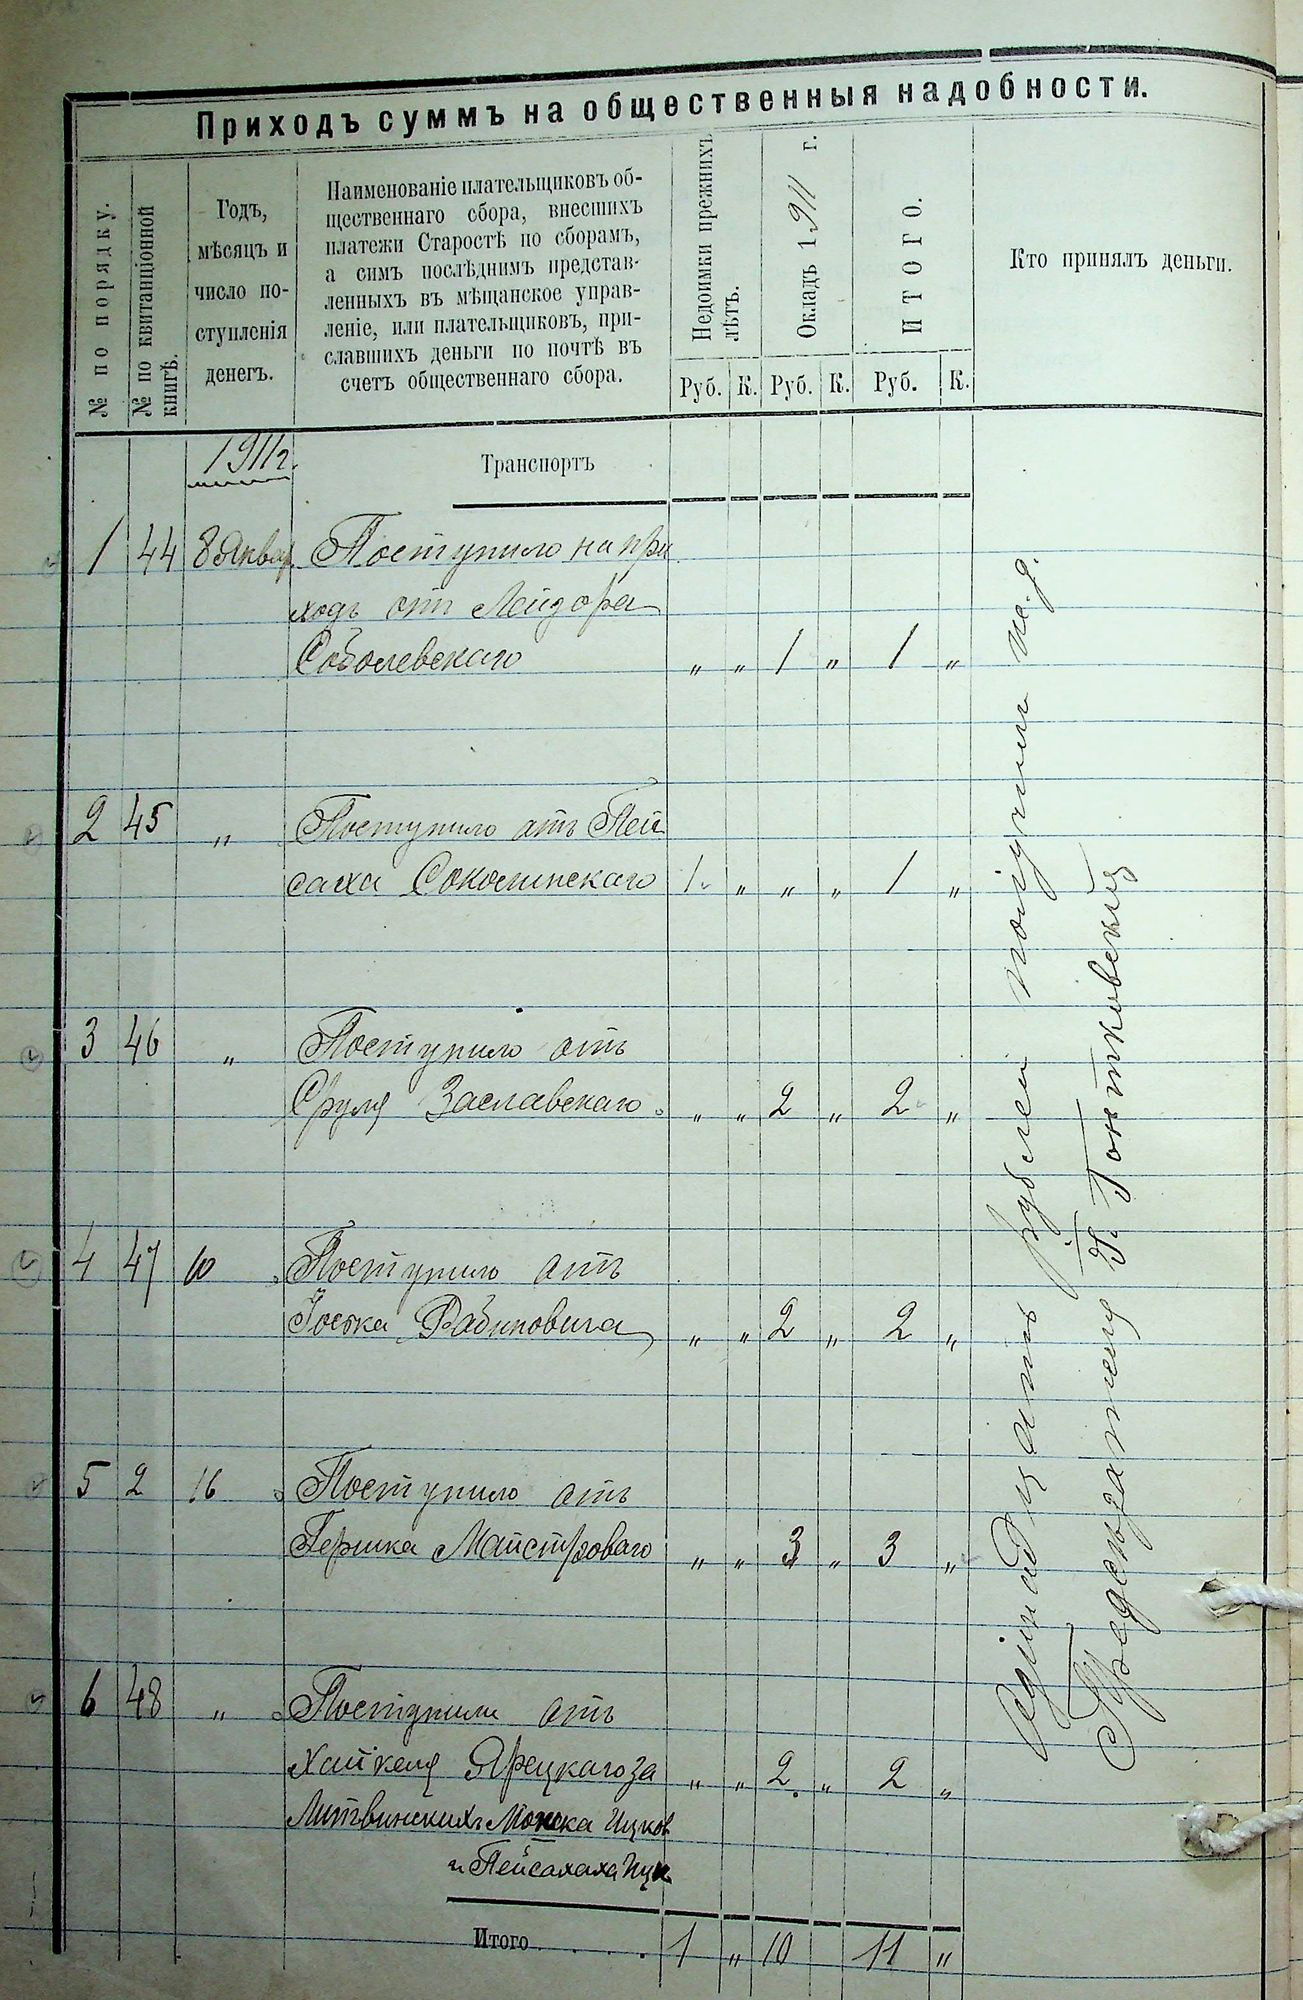 Приходъ суммъ на общественныя надобности.
№ по порядку.
№ по квитанціонной
книгѣ.
Годъ,
мѣсяцъ и
число по-
ступленія
денегъ.
Наименованіе плательщиковъ об-
щественнаго сбора, внесшихъ
платежи Старостѣ по сборамъ,
а симъ послѣднимъ представ-
ленныхъ въ мѣщанское управ-
леніе, или плательщиковъ, при-
славшихъ деньги по почтѣ въ
счетъ общественнаго сбора.
Недоимки прежнихъ
лѣтъ.
Окладъ 1911 г.
ИТОГО.
Кто принялъ деньги.
Руб. К. Руб. К. Руб. К.
1911 г. Транспортъ
1 44 8 Январ. Поступило на при
ходъ отъ Лейзора
Соболевскаго „ „ 1 „ 1 „
2 45 „ Поступило отъ Пей
саха Соколинскаго 1 „ „ „ 1 „
3 46 „ Поступило отъ
Сруля Заславскаго „ „ 2 „ 2 „
4 47 10 Поступило отъ
Іоська Рабиновича „ „ 2 „ 2 „
5 2 16 Поступило отъ
Гершка Майстроваго „ „ 3 „ 3 „
6 48 „ Поступили отъ
Хайкеля Ярецкаго за „ „ 2 „ 2 „
Литвинскихъ Мошка Ицков
и Пейсахаха Ицк
Итого . . . . . 1 „ 10 11 „
Одінадцать рублей получилъ
Председатель Гонтковскій